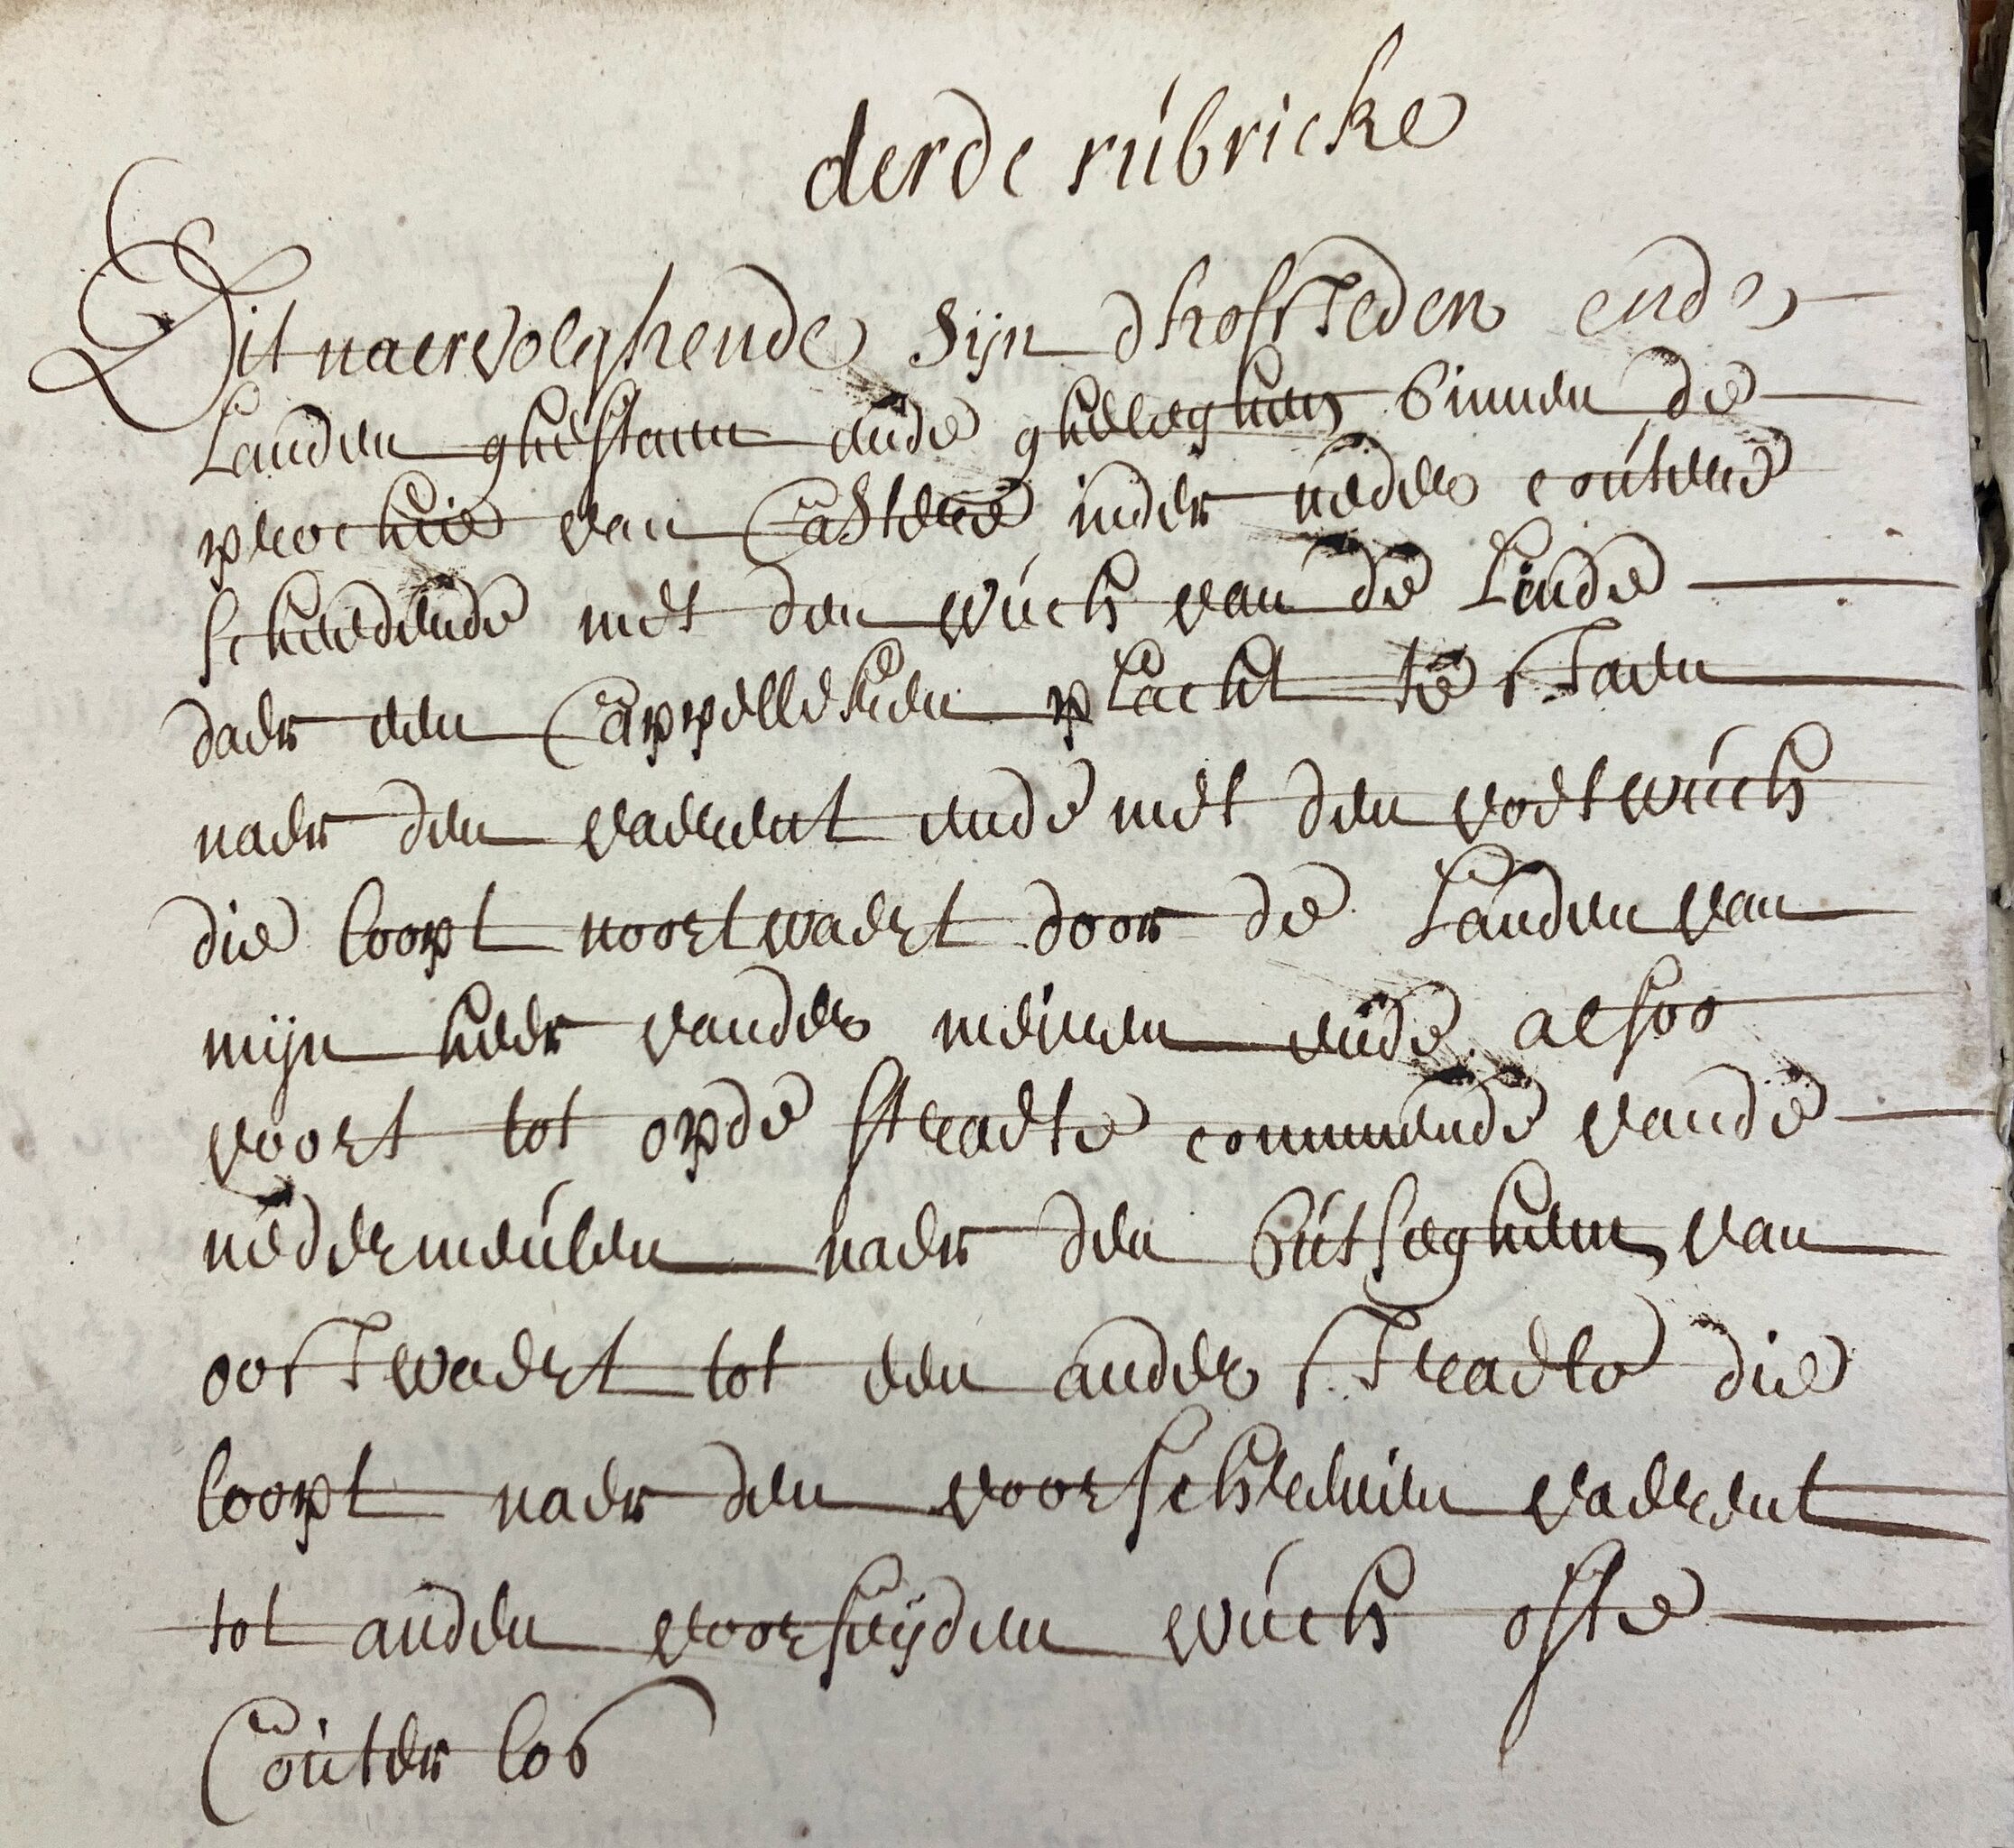 derde rúbricke
Dit naervolghende sijn dhofsteden ende
Landen ghestaen ende gheleghen binnen de
prochie van Castere inder neder coútere
scheedende met den wúch van de Linde
daer een Cappelleken placht te staen
naer den vaerent ende met den voetwúch
die loopt noortwaert door de Landen van
mijn heer vander meúren ende alsoo
voort tot opde straete commende vande
nedermeúlen naer den bútseghem van
oostwaert tot een ander straete die
loopt naer den voorschreven vaerent
tot anden voorseijden wúch ofte
Coúter los